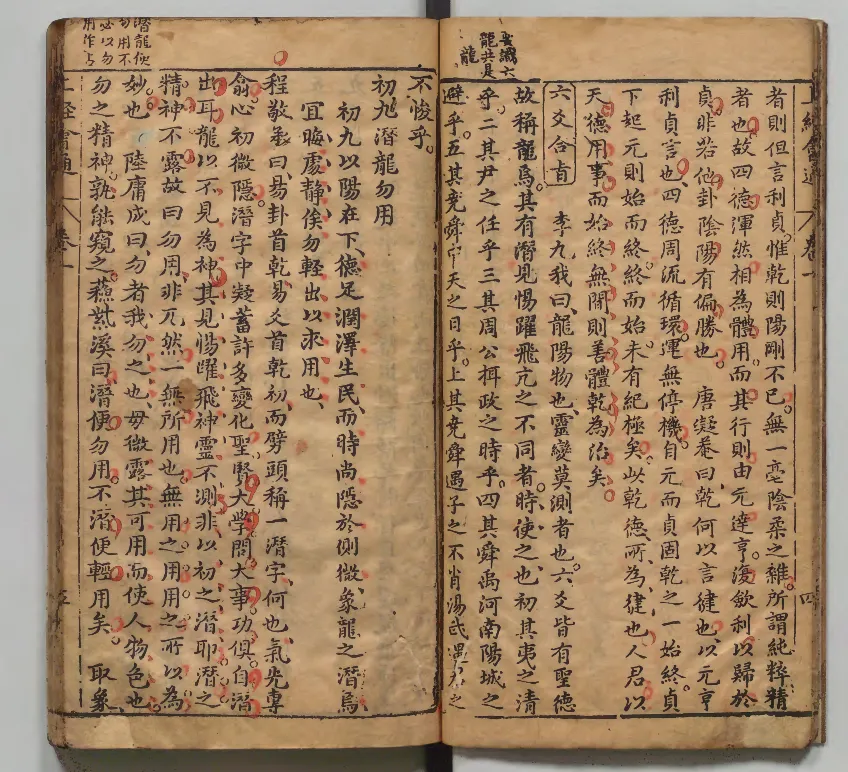 上經會通 卷一 四
者則但言利貞惟乾則陽剛不已無一毫陰柔之雜所謂純粹精
者也故四德渾然相為體用而其行則由元達亨復斂利以歸於
貞非若他卦陰陽有偏勝也 唐凝菴曰乾何以言健也以元亨
利貞言也四德周流循環運無停機自元而貞固乾之一始終貞
下起元則始而終終而始未有紀極矣以乾德所為健也人君以
天德用事而始終無間則善體乾為治矣
六爻合旨 李九我曰龍陽物也靈變莫測者也六爻皆有聖德
故稱龍焉其有潛見惕躍飛亢之不同者時使之也初其夷之清
乎二其尹之任乎三其周公輔政之時乎四其舜禹河南陽城之
避乎五其堯舜中天之日乎上其堯舜遇子之不肖湯武遇君之
要識六
龍共是
龍
不悛乎
初九潛龍勿用
初九以陽在下德足潤澤生民而時尚隱於側微象龍之潛焉
宜晦處靜俟勿輕出以求用也
程敬承曰易卦首乾易爻首乾初而劈頭稱一潛字何也氣先專
翕心初微隱潛字中凝蓄許多變化聖賢大學問大事功俱自潛
出耳龍以不見為神其見惕躍飛神靈不測非以初之潛耶潛之
精神不露故曰勿用非兀然一無所用也無用之用用之所以為
妙也 陸庸成曰勿者我勿之也毋微露其可用而使人物色也
勿之精神孰能窺之蘇紫溪曰潛便勿用不潛便輕用矣 取象
潛龍便
勿用不
必以勿
用作占
上經會通 卷一 五